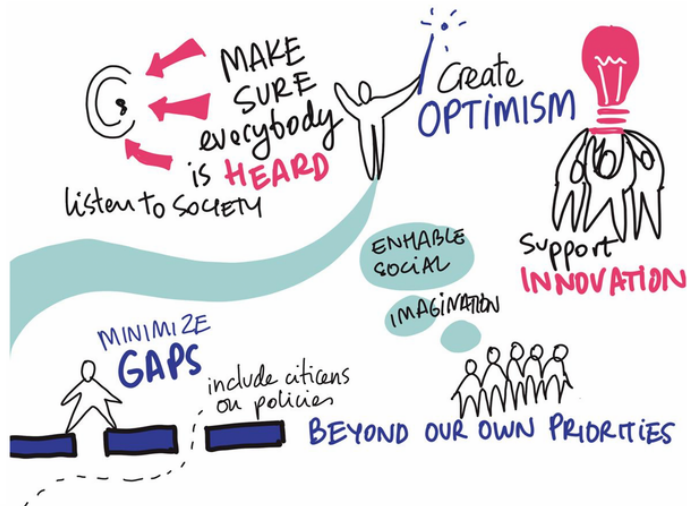 MAKE
SURE
everybody
is HEARD
listen to SOCIETY
Create
OPTIMISM
Support
INNOVATION
ENHABLE
SOCIAL
IMAGINATION
MINIMIZE
GAPS
include citicens
on policies
BEYOND OUR OWN PRIORITIES